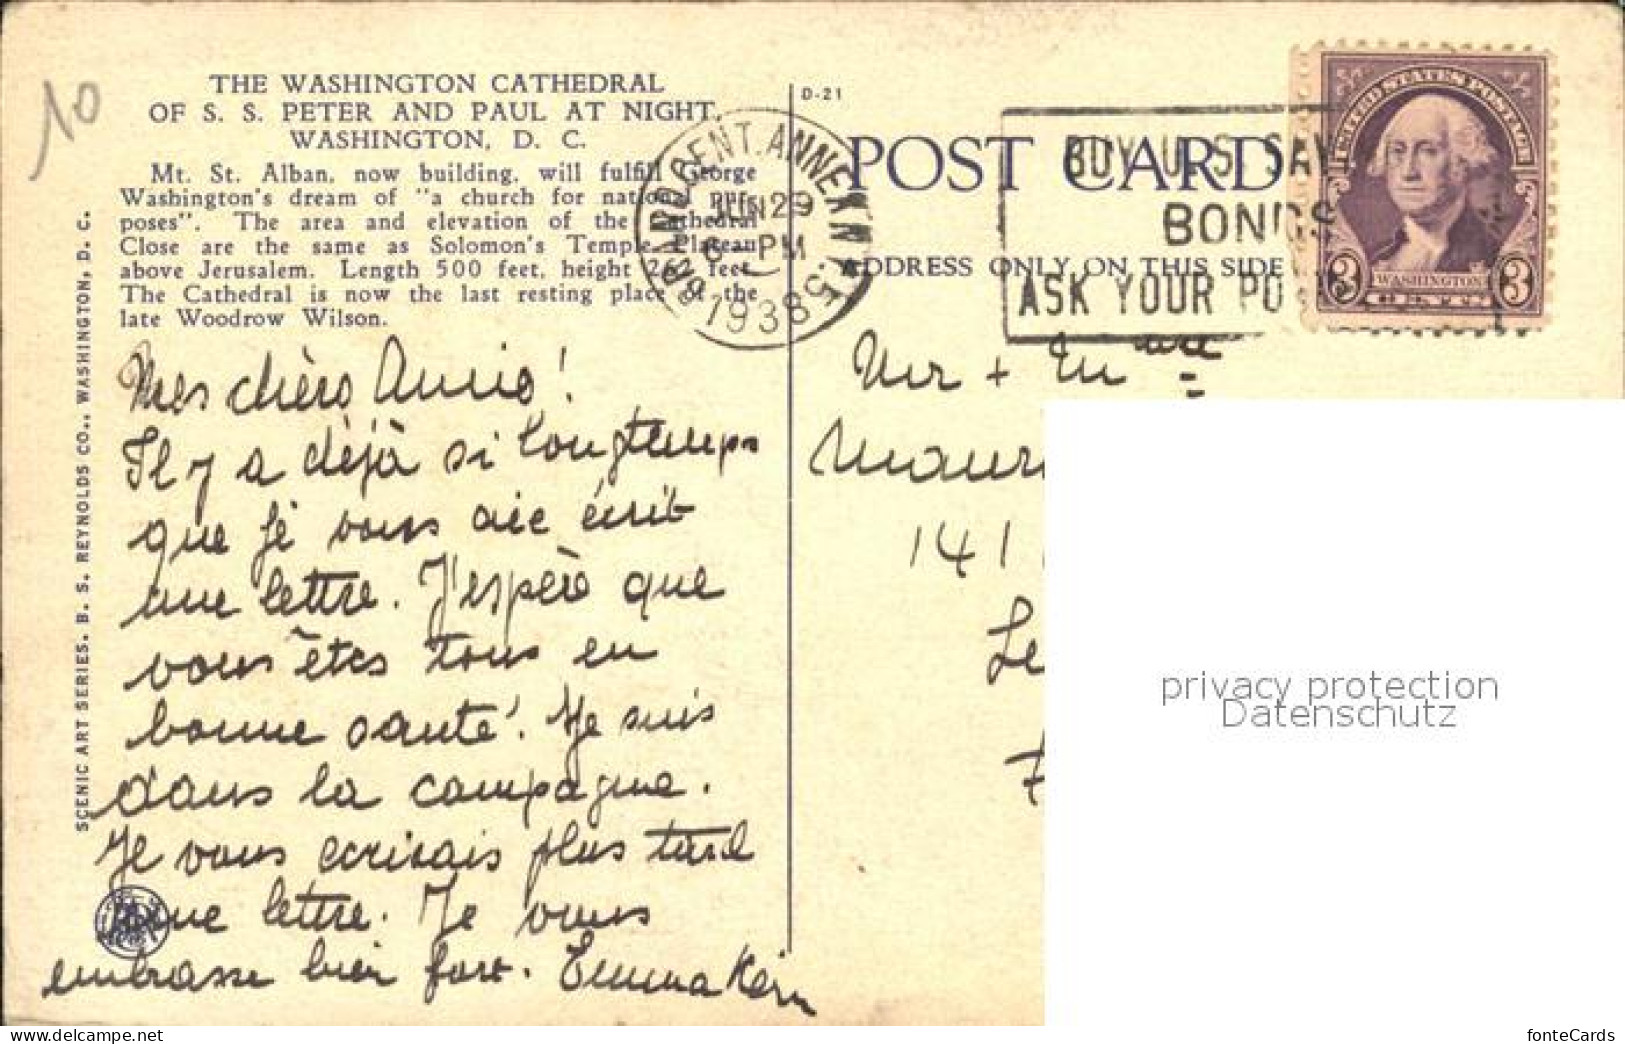 10
THE WASHINGTON CATHEDRAL
OF S. S. PETER AND PAUL AT NIGHT,
WASHINGTON, D. C.
Mt. St. Alban, now building, will fulfill George
Washington's dream of "a church for national pur-
poses". The area and elevation of the Cathedral
Close are the same as Solomon's Temple Plateau
above Jerusalem. Length 500 feet, height 262 feet.
The Cathedral is now the last resting place of the
late Woodrow Wilson.
SCENIC ART SERIES. B. S. REYNOLDS CO., WASHINGTON, D. C.
Mes chèrs Amis!
Il y a déjà si longtemps
que je vous aie écrit
une lettre. J'espère que
vous êtes tous en
bonne santé! Je suis
dans la campagne.
Je vous ecrirais plus tard
une lettre. Je vous
embrasse bien fort. Emma
D-21
POST CARD
ADDRESS ONLY ON THIS SIDE
CENT. ANNEX
JUN 29
6 PM
1938
BUY U S SAV
BONDS
ASK YOUR PO
UNITED STATES POSTAGE
3 WASHINGTON 3
CENTS
Mr + Mme
Maur
141
Le
privacy protection
Datenschutz
fonteCards